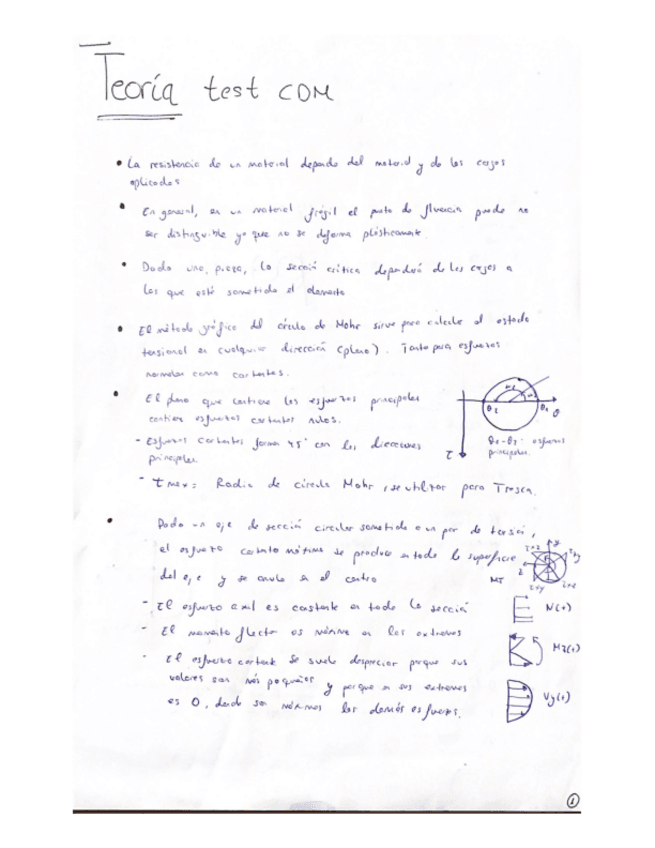 Teoría test COM
• La resistencia de un material depende del material y de las cargas
aplicadas
• En general, en un material frágil el punto de fluencia puede no
ser distinguible ya que no se deforma plásticamente.
• Dada una pieza, la sección crítica dependerá de las cargas a
las que esté sometido el elemento
• El método gráfico del círculo de Mohr sirve para calcular el estado
tensional en cualquier dirección (plano). Tanto para esfuerzos
normales como cortantes.
• El plano que contiene los esfuerzos principales
contiene esfuerzos cortantes nulos.
- Esfuerzos cortantes forman 45° con las direcciones
principales.
- τmax = Radio de círculo Mohr, se utiliza para Tresca.
esfuerzos
principales.
τ
• Dado un eje de sección circular sometido a un par de torsión,
el esfuerzo cortante máximo se produce en toda la superficie
del eje y se anula en el centro
MT
- El esfuerzo axil es constante en toda la sección
N(+)
- El momento flector es máximo en los extremos
Mz(+)
- El esfuerzo cortante se suele despreciar porque sus
valores son más pequeños y porque en sus extremos
es 0, donde son máximos los demás esfuerzos.
Vy(+)
1